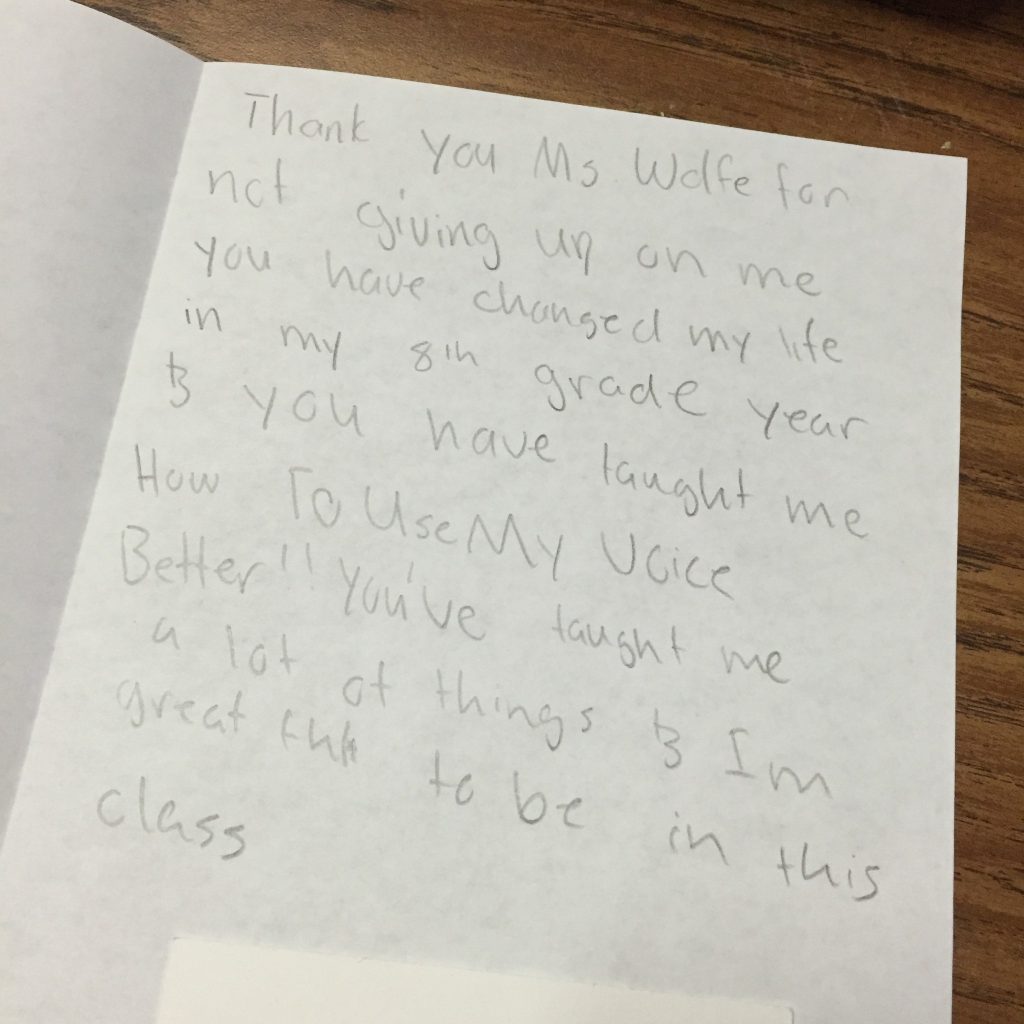 Thank you Ms. Wolfe for
not giving up on me
you have changed my life
in my 8th grade year
& you have taught me
How To Use My Voice
Better!! You've taught me
a lot of things & Im
great to be in this
class